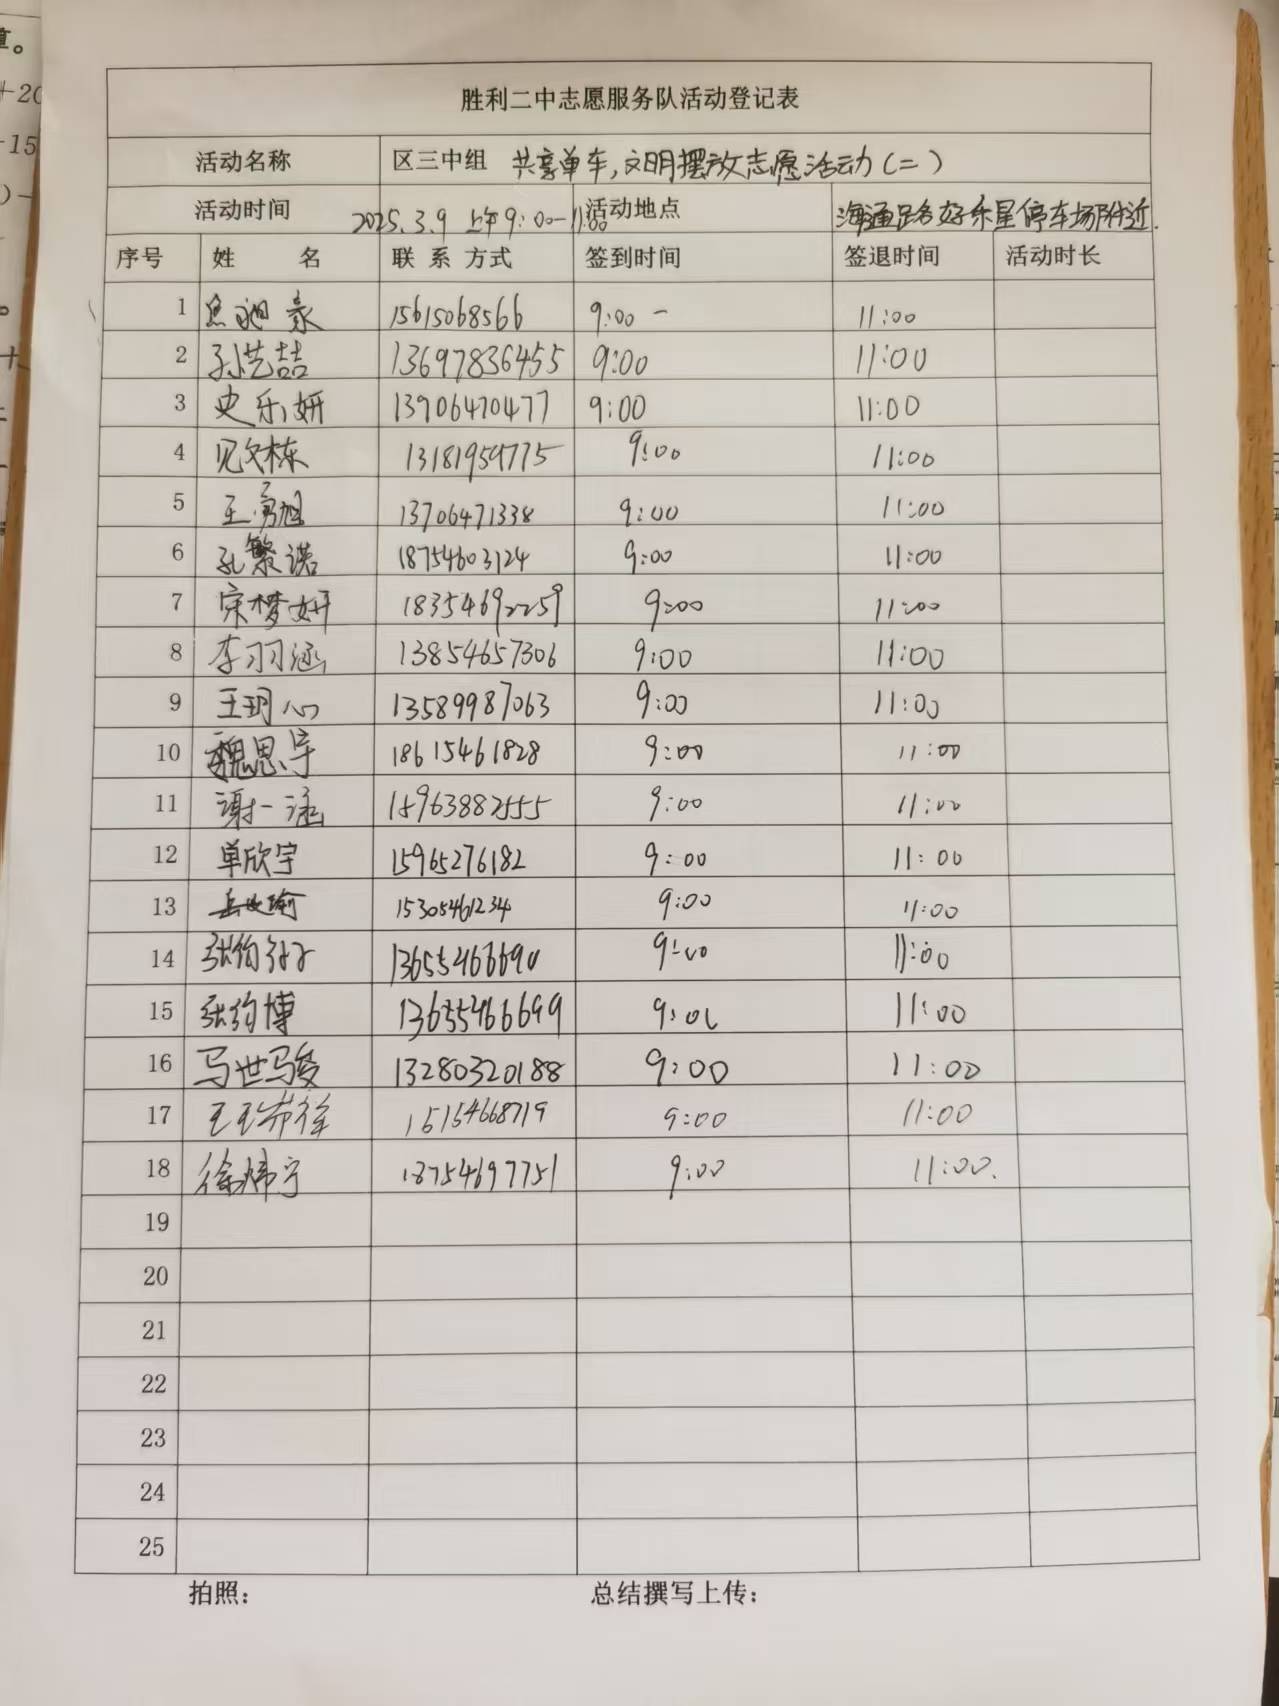 胜利二中志愿服务队活动登记表
活动名称 区三中组 共享单车,文明摆放志愿活动(二)
活动时间 2025.3.9 上午9:00-11:00 活动地点 海通路好乐星停车场附近.
序号 姓 名 联 系 方式 签到时间 签退时间 活动时长
1 15615068566 9:00 - 11:00
2 孙艺喆 13697836455 9:00 11:00
3 史乐妍 13906470477 9:00 11:00
4 见文栋 13181959775 9:00 11:00
5 王勇旭 13706471338 9:00 11:00
6 孔繁诺 18754603124 9:00 11:00
7 宋梦妍 18354692259 9:00 11:00
8 李羽涵 13854657306 9:00 11:00
9 王玥心 13589987063 9:00 11:00
10 魏思宇 18615461828 9:00 11:00
11 谢一涵 15963882555 9:00 11:00
12 单欣宇 15965276182 9:00 11:00
13 15305461234 9:00 11:00
14 9:00 11:00
15 张钧博 13655466699 11:00
16 马世骏 13280320188 9:00 11:00
17 15154668719 9:00 11:00
18 徐炜宁 18754697751 9:00 11:00.
19
20
21
22
23
24
25
拍照: 总结撰写上传: